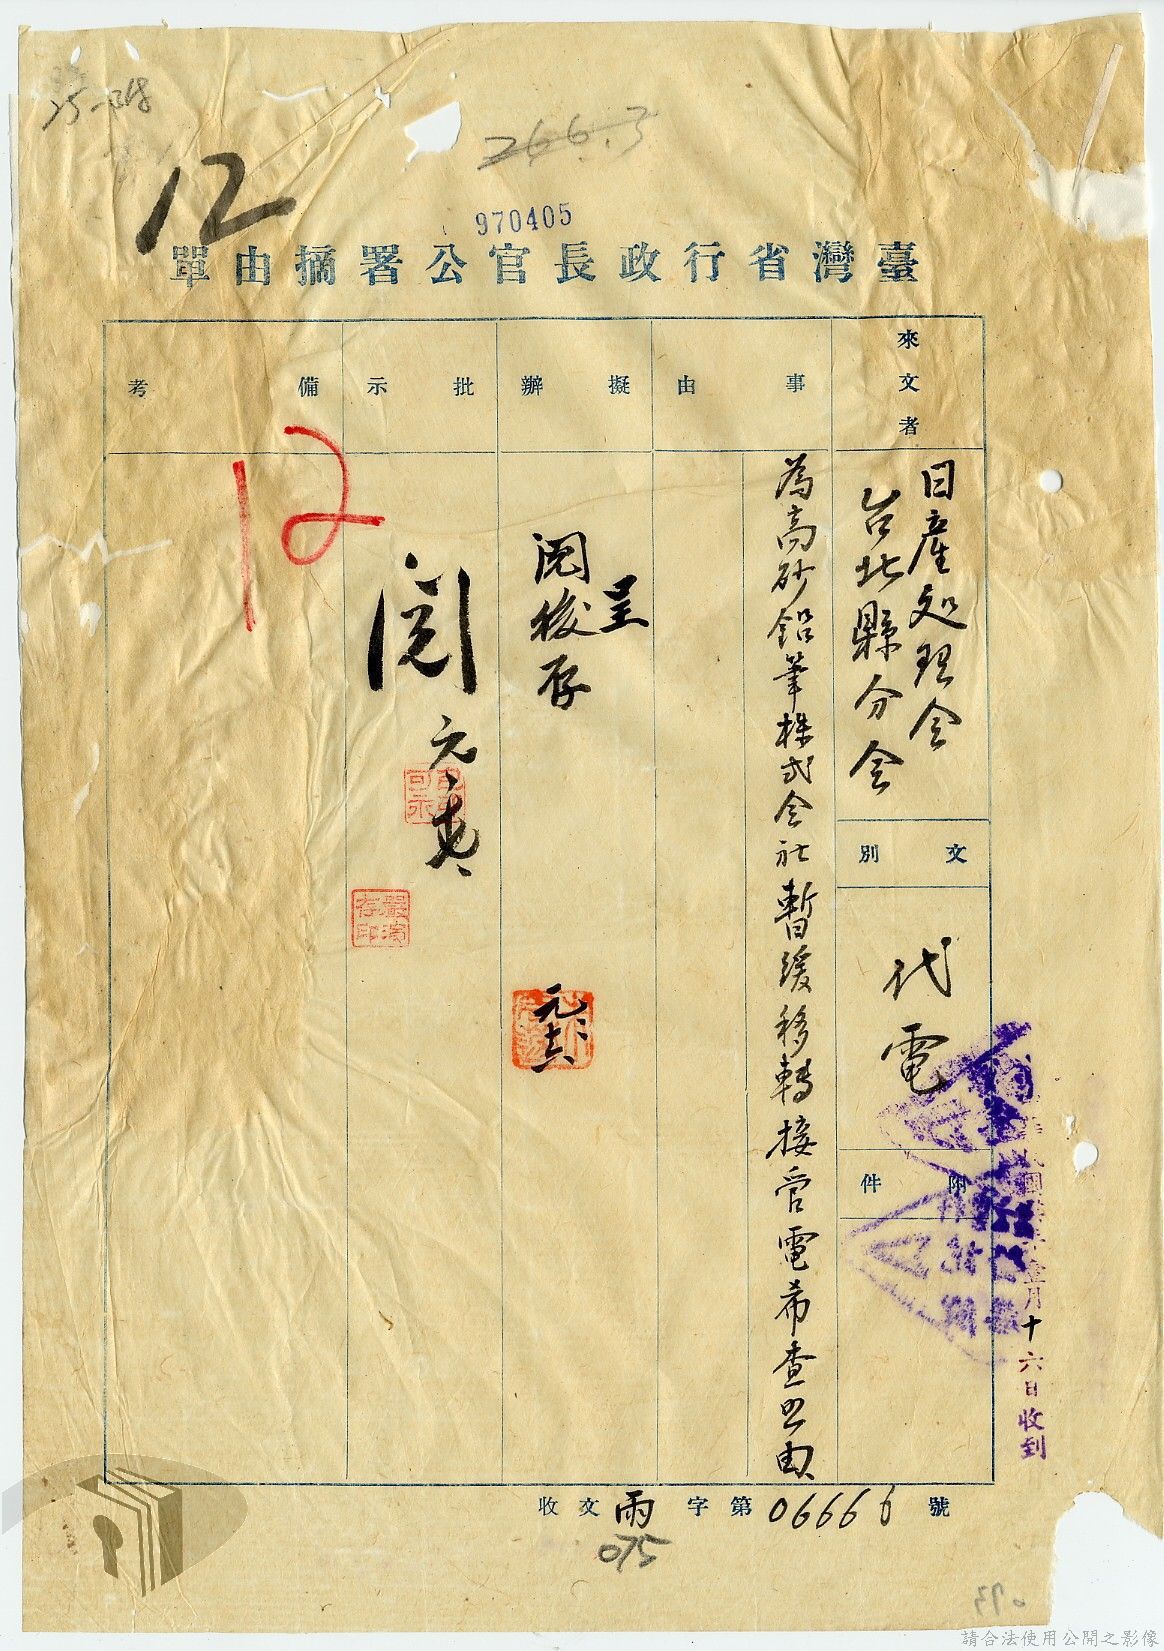 12
266.3
970405
臺灣省行政長官公署摘由單
來文者
日產処理会
台北縣分会
文別
代電
附件
事由
為高砂鉛筆株式会社暫緩移轉接管電希查照由
擬辦
呈
閱後存
元、
批示
閱
元、
備考
12
月十六日收到
收文雨字第06666號
075
請合法使用公開之影像